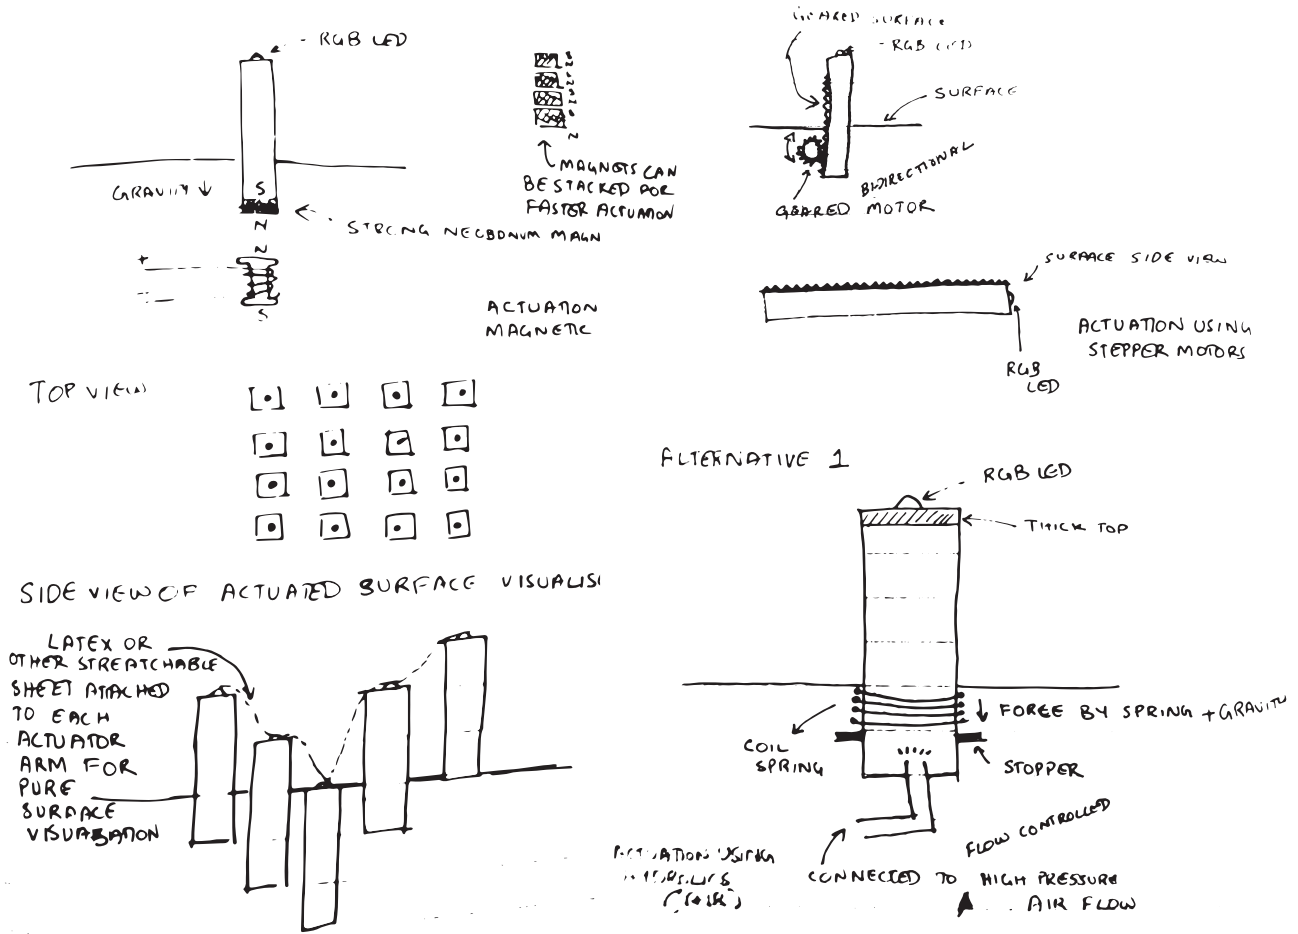 RGB LED
GRAVITY
S
STRONG NEOBDNUM MAGN
N
N
+
-
S
N
MAGNETS CAN
BE STACKED FOR
FASTER ACTUATION
ACTUATION
MAGNETIC
GEARED SURFACE
RGB LED
SURFACE
BIDIRECTIONAL
GEARED MOTOR
SURFACE SIDE VIEW
RGB
LED
ACTUATION USING
STEPPER MOTORS
TOP VIEW
SIDE VIEW OF ACTUATED SURFACE VISUALIS
LATEX OR
OTHER STREATCHABLE
SHEET ATTACHED
TO EACH
ACTUATOR
ARM FOR
PURE
SURFACE
VISUALISATION
ALTERNATIVE 1
RGB LED
THICK TOP
FORCE BY SPRING + GRAVITY
COIL
SPRING
STOPPER
FLOW CONTROLLED
CONNECTED TO HIGH PRESSURE
AIR FLOW
ACTUATION USING